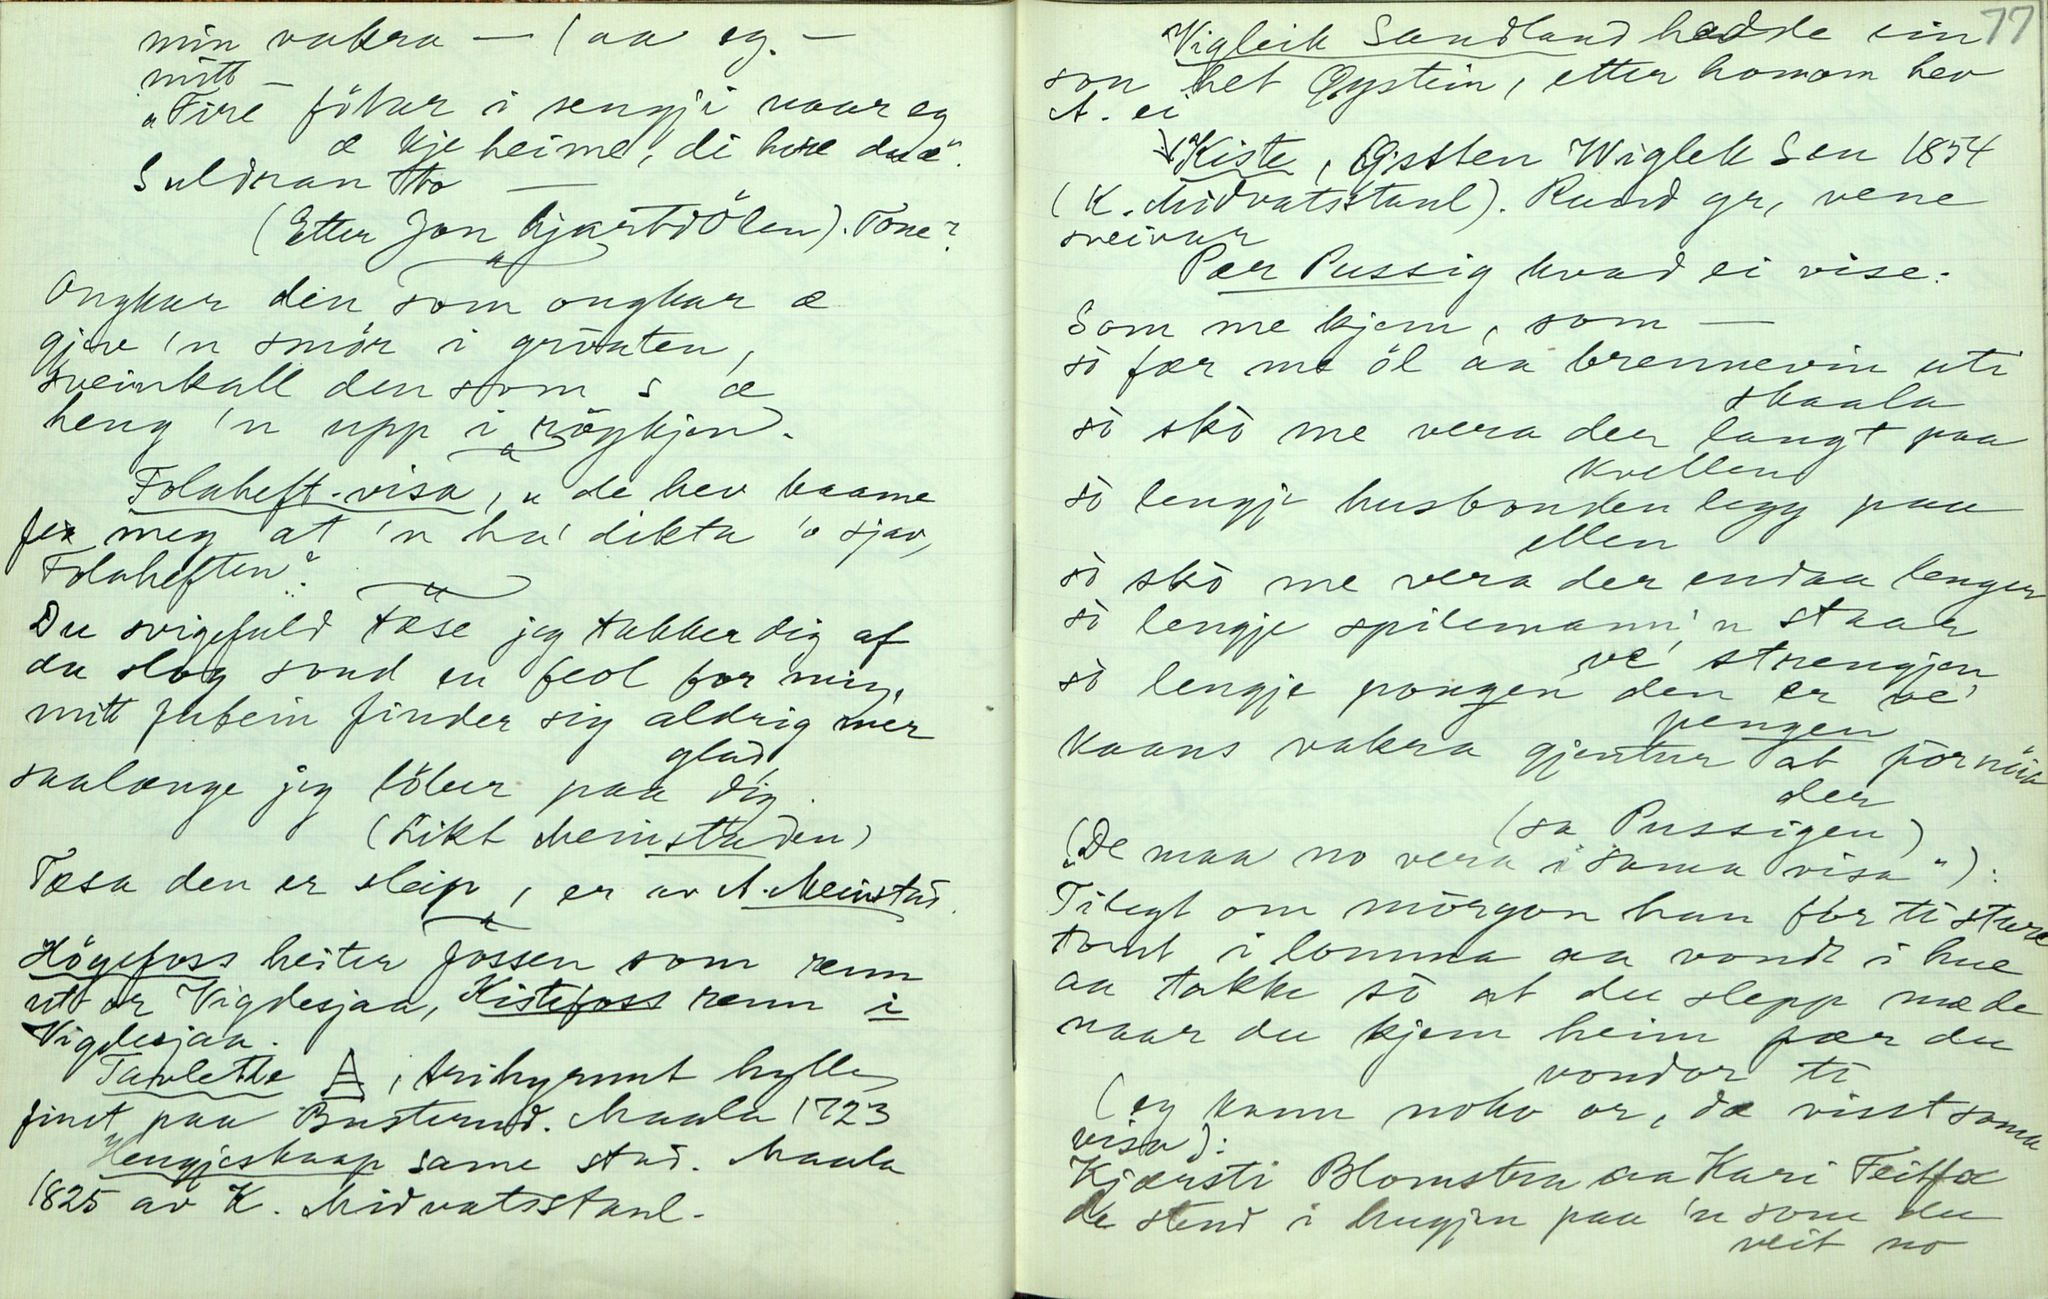 min vakra — (aa eg. —
mitt —
"Fire fötar i sengji naar eg
æ kje heime, di hire du æ".
Suldran sto —
(Etter Jon Hjartdölen). Tone?
Ongkar den som ongkar æ
gjev 'n smör i gröuten,
sveinkall den som s æ
heng 'n upp i röykjen.
Folaheft-visa, "de hev kaame
fer meg at 'n ha' dikta 'o sjav,
Folaheften".
Du svigefuld tæse jeg takker dig af
du slog sond en feol for mig,
mitt fubein finder sig aldrig mer
glad
saalænge jeg löber paa dig.
(Likt Meinstaden)
Tæsa den er sleip, er av A. Meinstad.
Högefoss heiter fossen som renn
ut or Vigdesjaa, Kistefoss renn i
Vigdesjaa.
Tavlette , trihyrnut hylle,
finst paa Busterud. Maala 1723
Hengjeskaap same stad. Maala
1825 av K. Midvatsstaul.
77
Vigleik Sandland hadde ein
son het Øystein, etter honom hev
A. ei
Kiste, Østen Wiglek Sen 1854
(K. Midvatsstaul). Raud gr, vene
sveivar
Pær Pussig kvad ei vise:
Som me kjem, som —
so fær me öl aa brennevin uti
skaala
so sko me vera der langt paa
kvellen
so lengje husbonden legg paa
ellen
so sko me vera der endaa lenger
so lengje spilemann'n staar
ve' strengjen
so lengje pongen den er ve'
pengen
Kaans vakra gjentur at fornöie
der
(sa Pussigen)
("De maa no vera i sama visa").
Tilegt om morgon han for ti sture
tomt i lomma aa vondt i hue
aa takke so at du slepp mæ de
naar du kjem heim fær du
vondor ti
(eg kann noko or, dæ visst sama
visa):
Kjersti Blomstra aa Kari Feitfæ
de stend i hugjen paa 'n som du
veit no